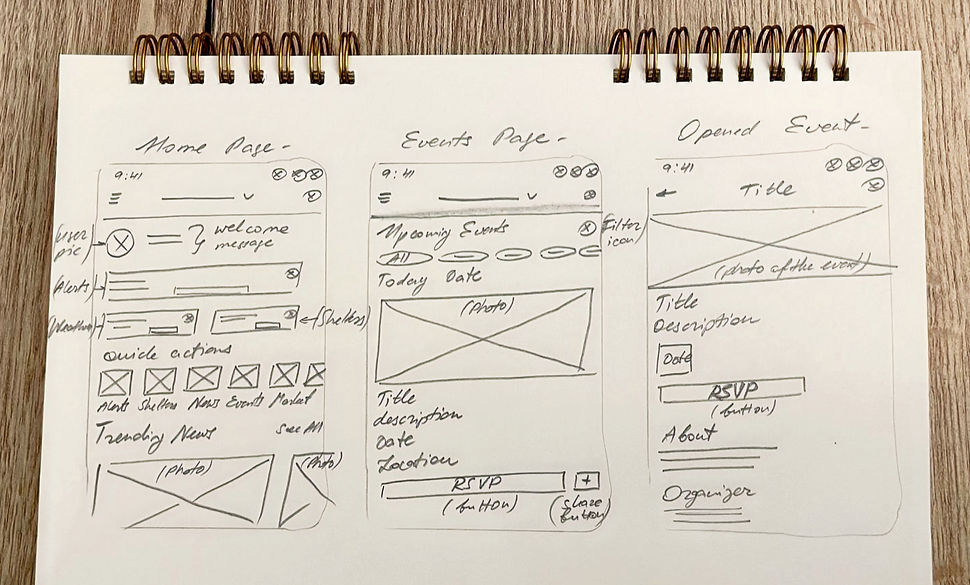 Home Page-
9:41
User pic
welcome message
Alerts
Weather
Shelters
Quick actions
Alerts Shelters News Events Market
Trending News See All
(Photo) (Photo)
Events Page-
9:41
Upcoming Events
Filter icon
All
Today Date
(Photo)
Title
description
Date
Location
RSVP +
(button) (share button)
Opened Event-
9:41
Title
(photo of the event)
Title
Description
Date
RSVP
(button)
About
Organizer